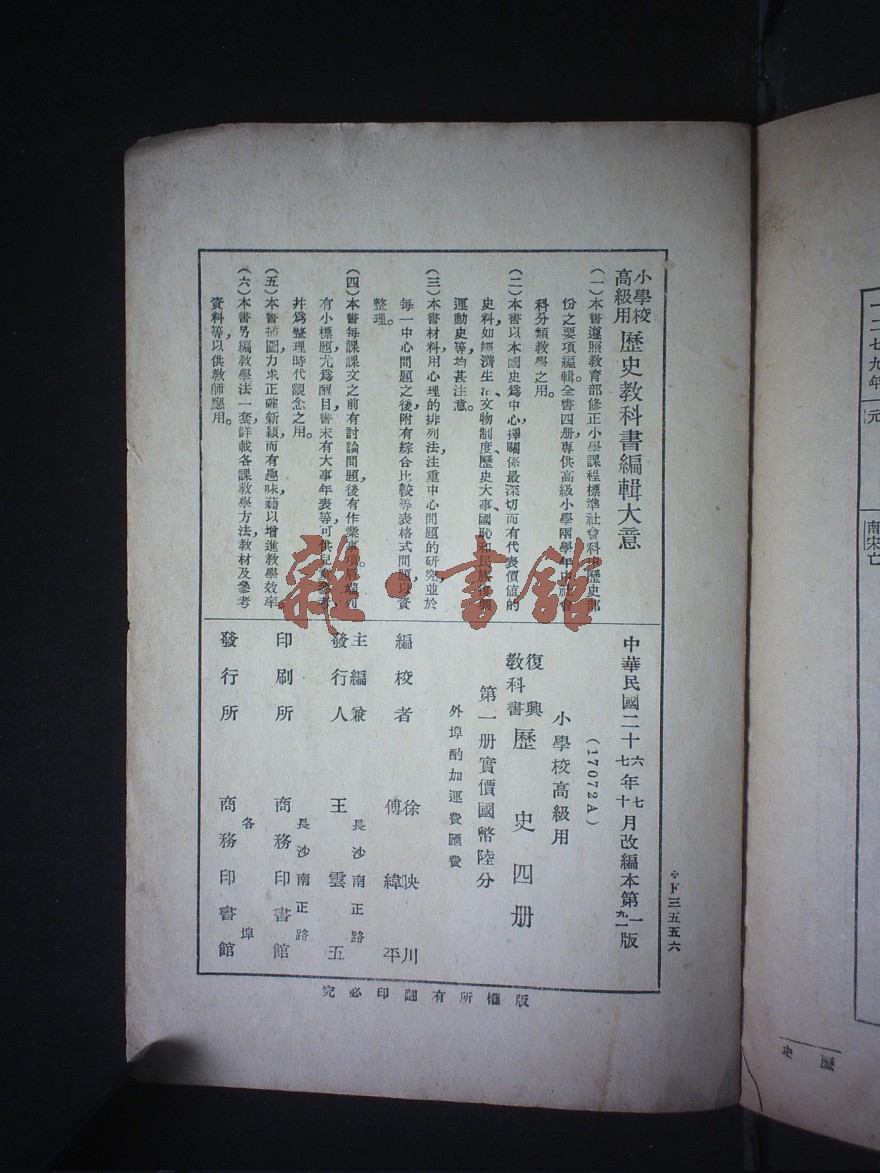 小學校高級用 歷史教科書編輯大意
(一)本書遵照教育部修正小學課程標準社會科中歷史部
份之要項編輯,全書四册,專供高級小學兩學年中社會
科分類教學之用。
(二)本書以本國史爲中心,擇關係最深切而有代表價值的
史料,如經濟生活、文物制度、歷史大事、國恥和民族復興
運動史等,均甚注意。
(三)本書材料用心理的排列法,注重中心問題的研究,並於
每一中心問題之後,附有綜合比較等表格式問題,以資
整理。
(四)本書每課課文之前有討論問題,後有作業事項。
有小標題,尤爲醒目,書末有大事年表等,可供兒童參考,
幷爲整理時代觀念之用。
(五)本書插圖力求正確新穎而有趣味,藉以增進教學效率。
(六)本書另編教學法一套,詳載各課教學方法、教材及參考
資料等,以供教師應用。
中華民國二十六年七月改編本第一版
七 十 九一
(17072A)
小學校高級用
復興教科書 歷史四册
第一册實價國幣陸分
外埠酌加運費匯費
編校者 徐映川 傅緯平
主編兼發行人 王雲五
長沙南正路
印刷所 商務印書館
長沙南正路
發行所 商務印書館
各埠
版權所有翻印必究
F三五五六
一二七九年
元
南宋亡
歷史
雜·書館